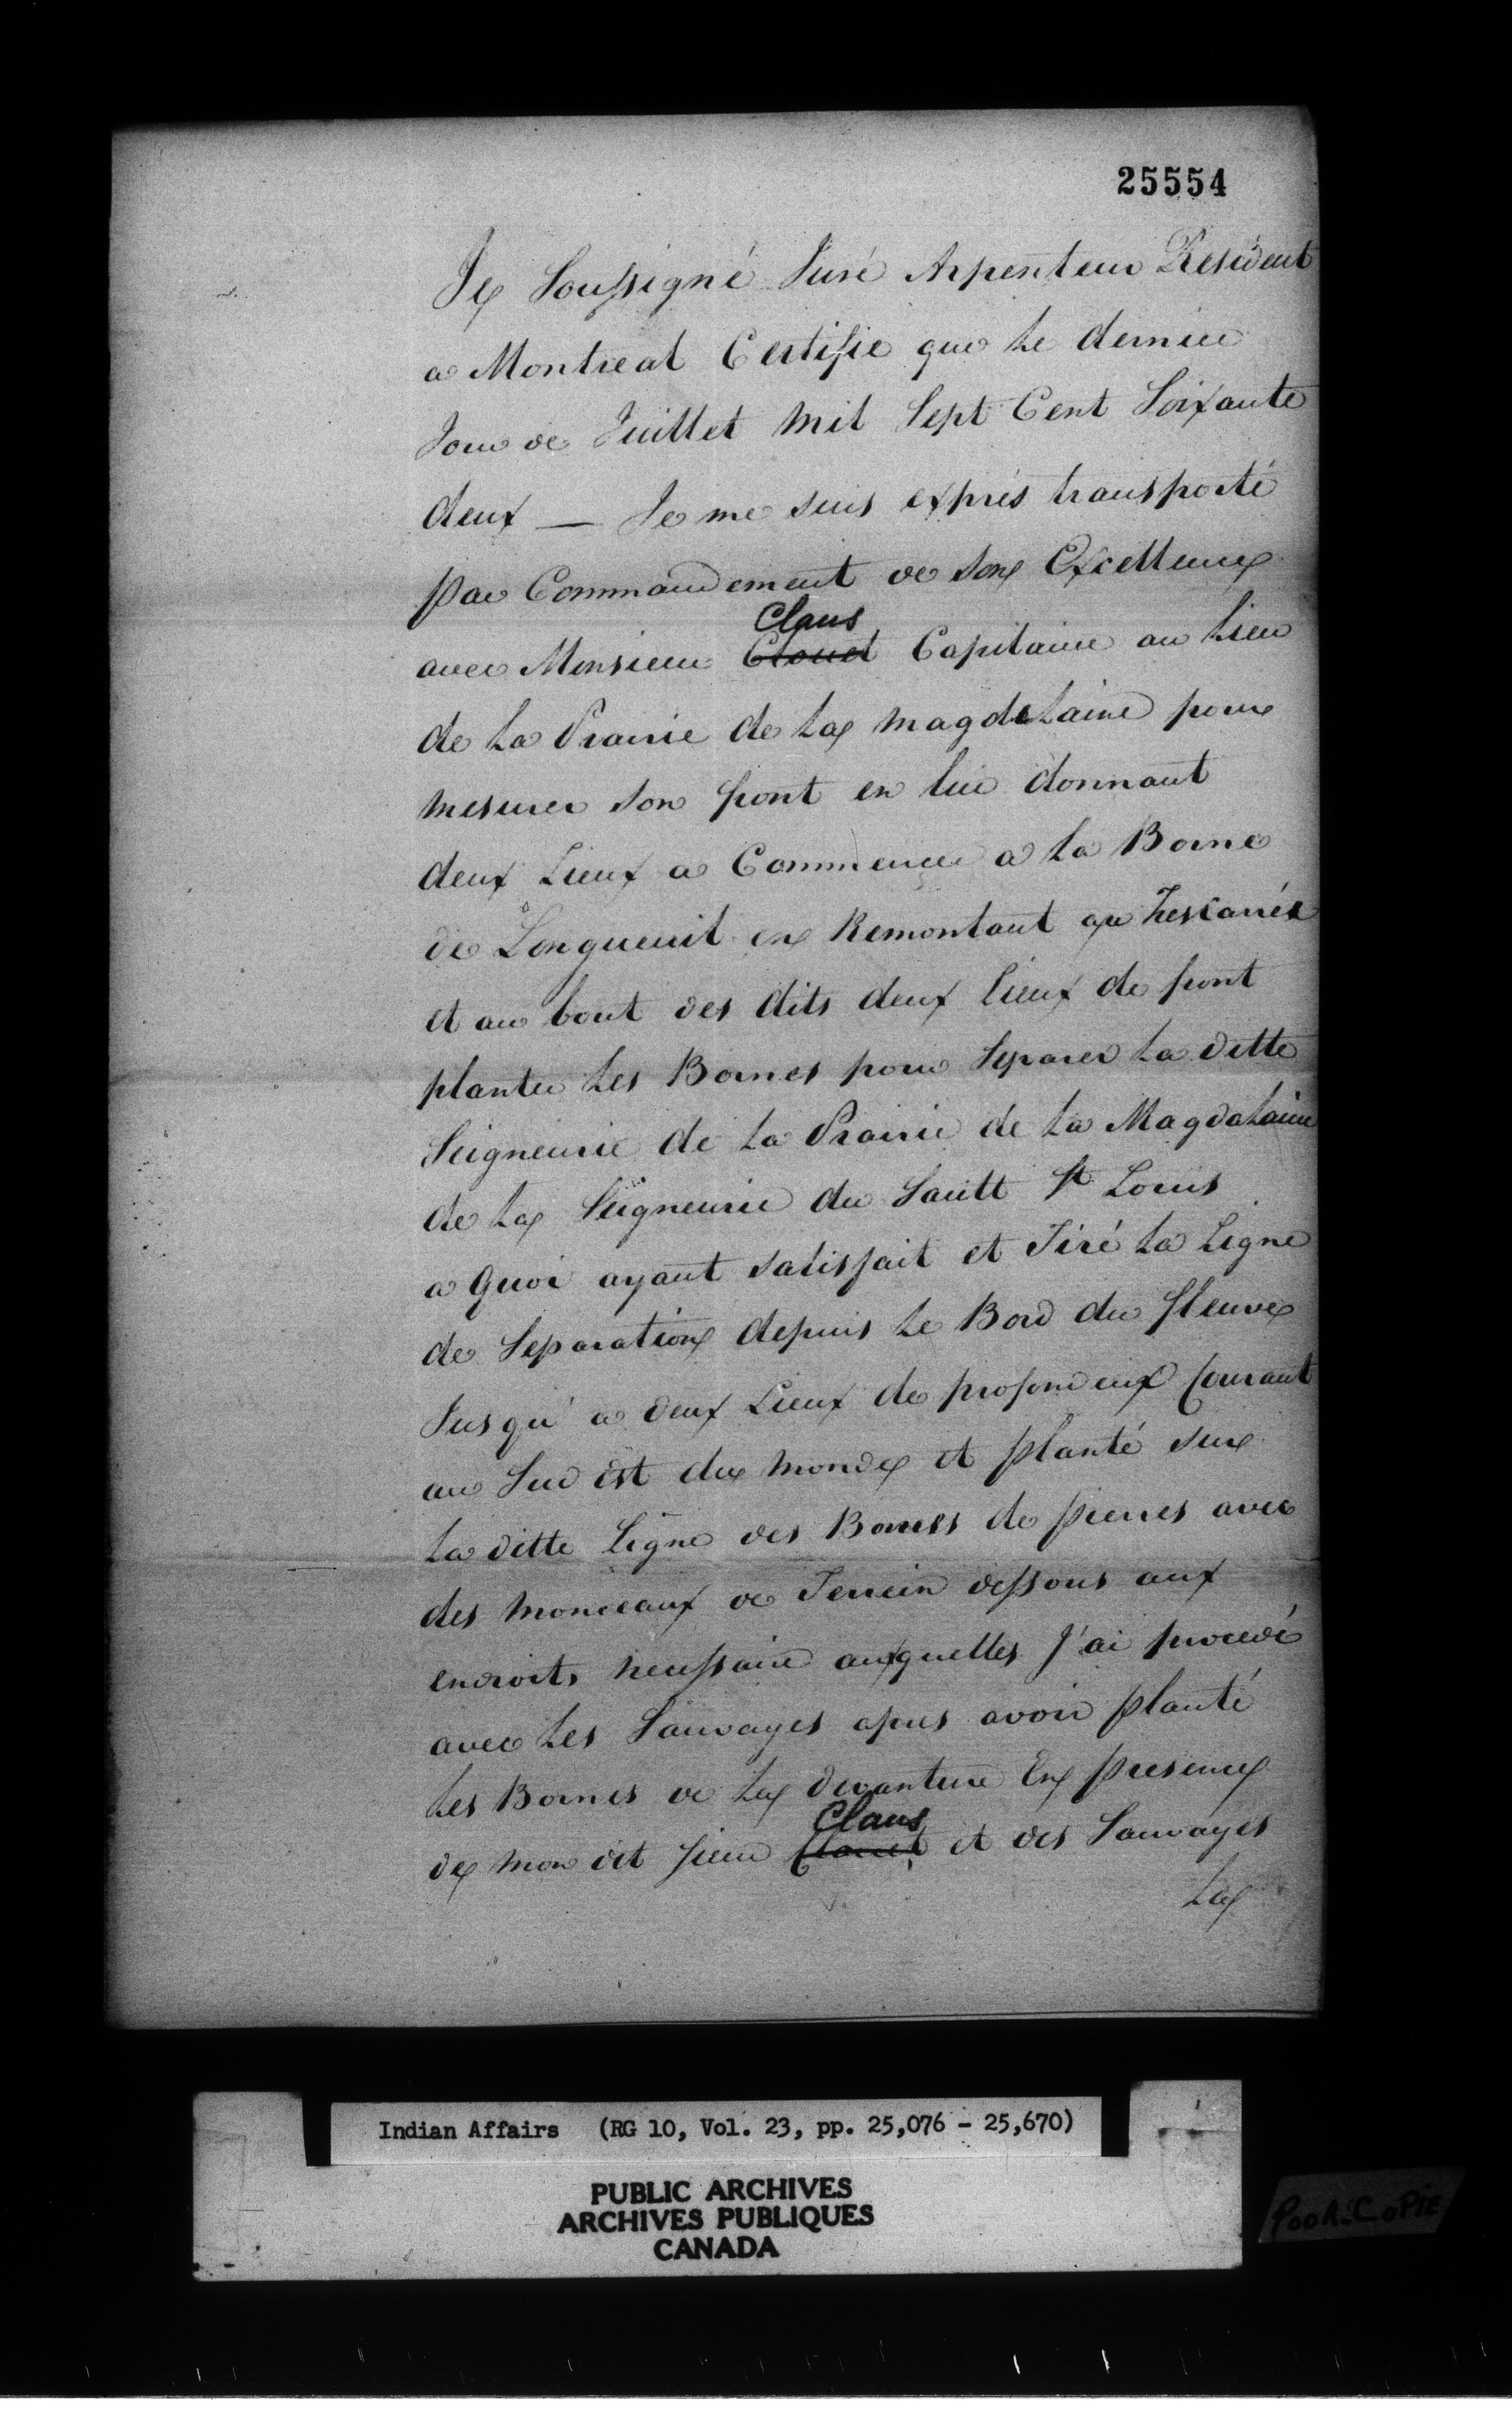 25554
Je Soussigné Juré Arpenteur Resident
a Montreal Certifie que le dernier
Jour de Juillet Mil Sept Cent Soixante
deux — Je me suis exprés transporté
par Commandement de son Excellence
Claus
avec Monsieur Clouet Capitaine au lieu
de La Prairie de la Magdelaine pour
mesurer son front en lui donnant
deux Lieux a Commencer a la Borne
de Longueuil en Remontant au
et au bout des dits deux lieux de front
planter les Bornes pour Separer la ditte
Seigneurie de la Prairie de la Magdalaine
de la Seigneurie du Sault St Louis
a Quoi ayant satisfait et Tiré la Ligne
de Separation depuis le Bord du fleuve
Jusqu'a deux Lieux de profondeur Courant
au Sud est du monde et planté sur
la ditte Ligne des Bornes de pierres avec
des monceaux de Terrein dessous aux
endroits necessaire auxquelles J'ai procedé
avec les Sauvages apres avoir planté
les Bornes de la devanture En presence
Claus
de mon dit sieur Clouet et des Sauvages
la
Indian Affairs (RG 10, Vol. 23, pp. 25,076 - 25,670)
PUBLIC ARCHIVES
ARCHIVES PUBLIQUES
CANADA
Poor-Copie